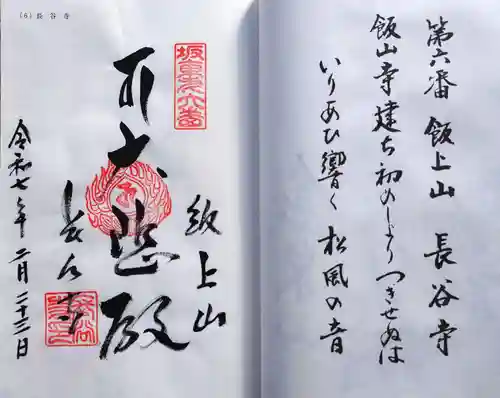 第六番 飯上山 長谷寺
飯山寺建ち初めしより つきせぬは
いりあひ響く 松風の音
(6) 長谷寺
坂東第六番
飯上山
大悲殿
長谷寺
令和七年 二月二十三日